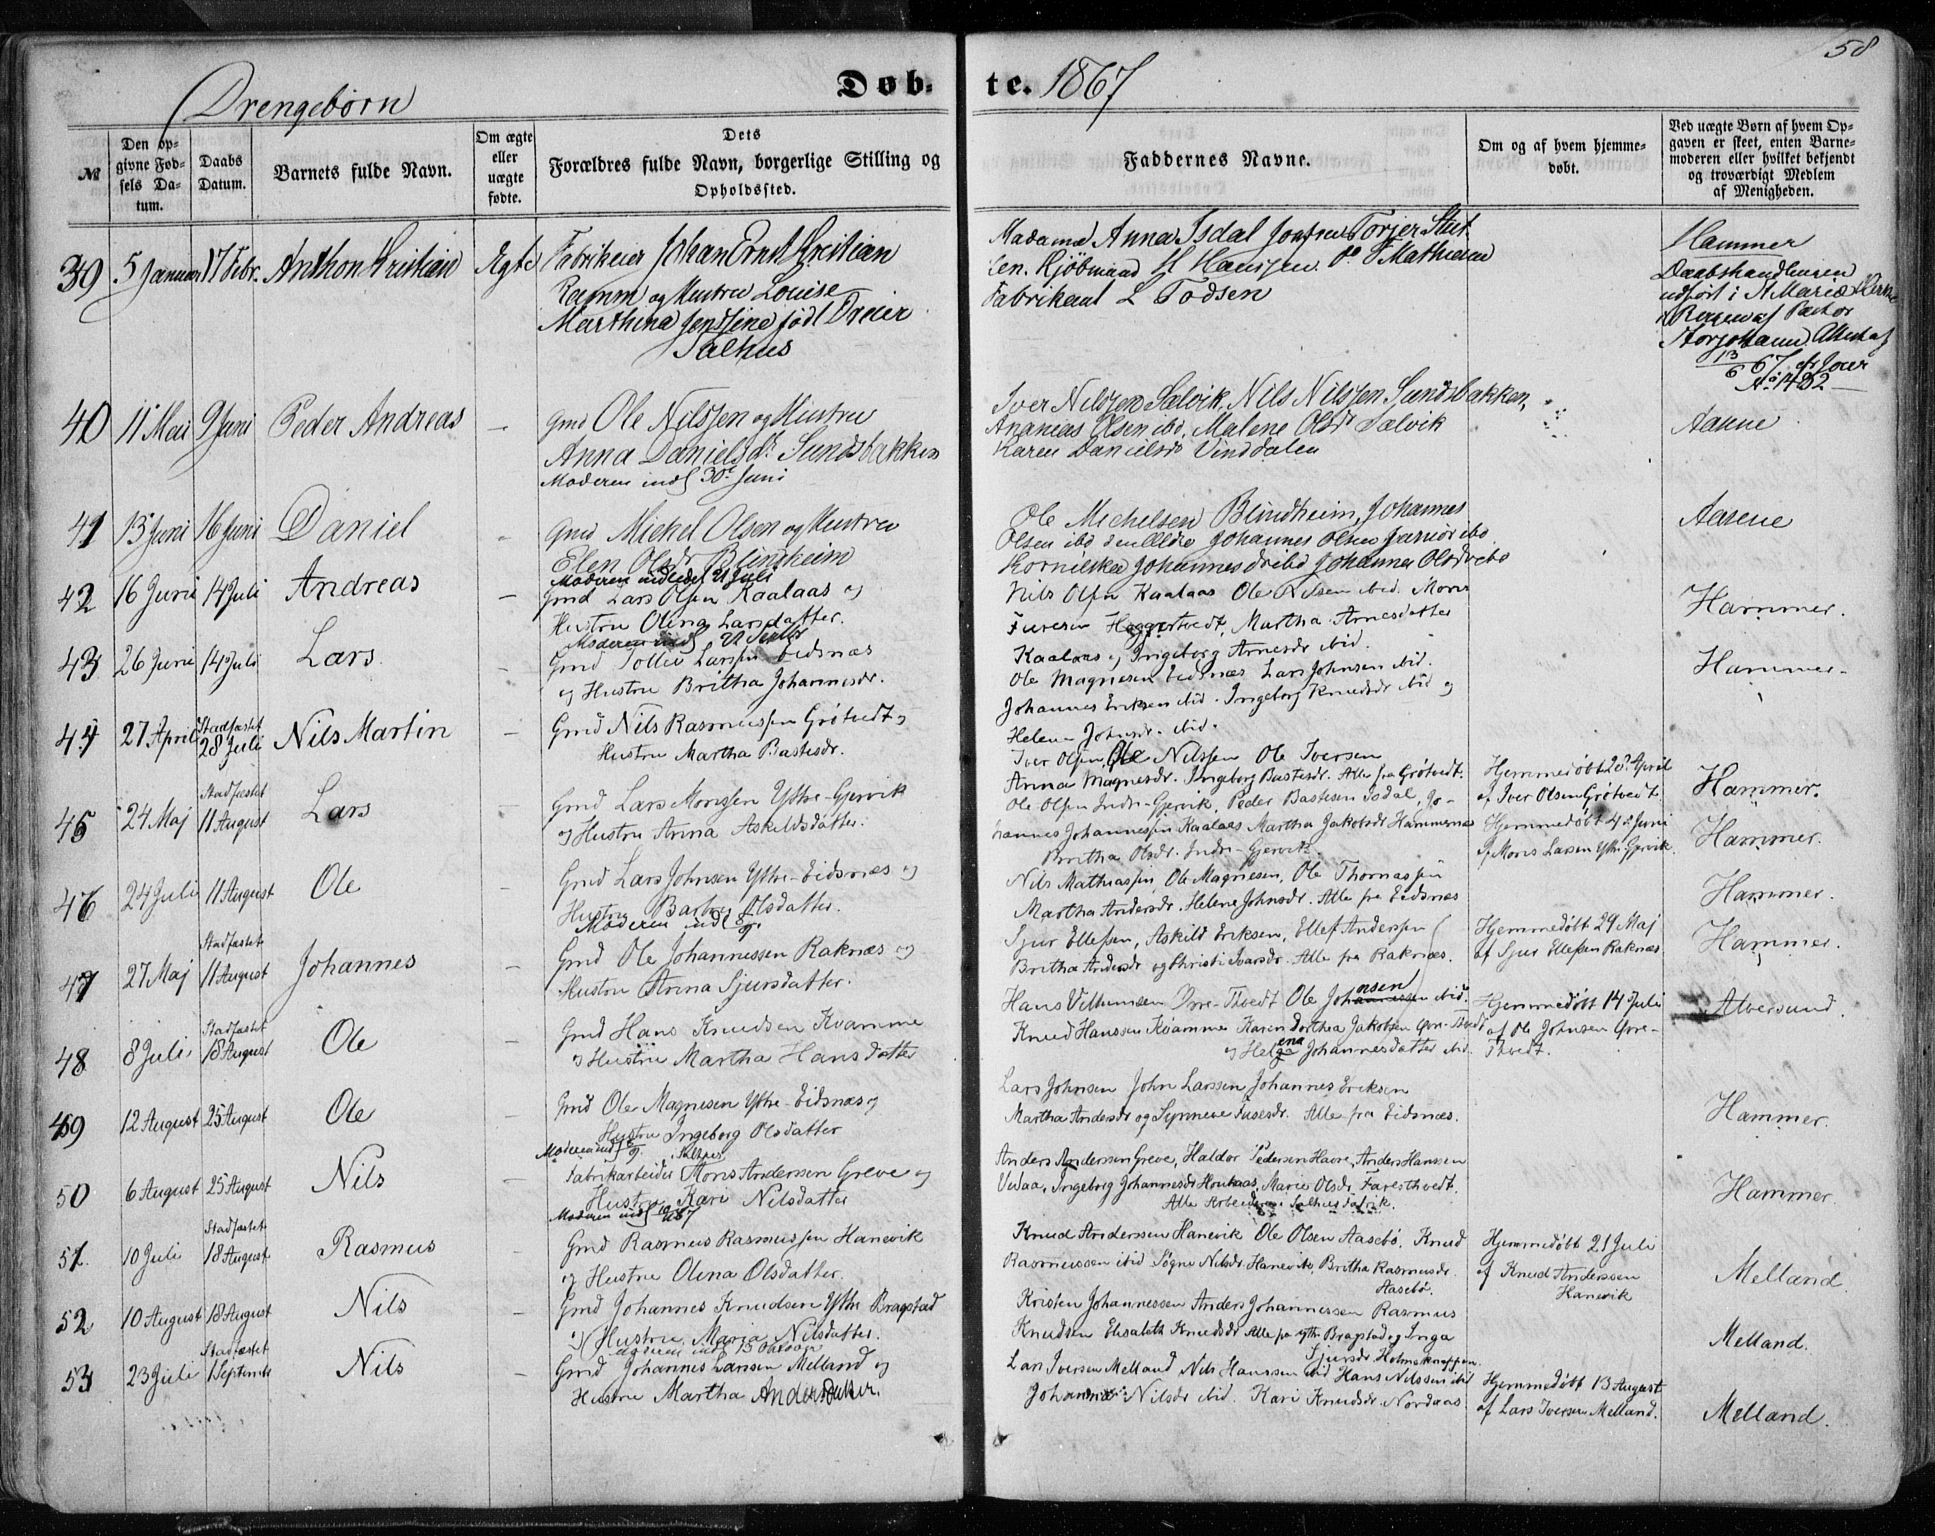 58
Drengebørn
Døbte. 1867
№
Den opgivne Fødsels Datum.
Daabs Datum.
Barnets fulde Navn.
Om ægte eller uægte fødte.
Dets Forældres fulde Navn, borgerlige Stilling og Opholdssted.
Faddernes Navne.
Om og af hvem hjemmedøbt.
Ved uægte Børn af hvem Opgaven er skeet, enten Barnemoderen eller hvilket bekjendt og troværdigt Medlem af Menigheden.
39 5 Januar 17 Febr. Anthon Kristian Ægte
Fabrikeier Johan Ernst Kristian
Ramm og Hustru Louise
Marthina født Dreier
Salhus
Madame Anna Isdal
Kjøbmand H Hanssen
Fabrikant L Todsen
Hammer
Daabshandlingen
udført i St Mariæ
Bergen af Pastor
Storjohann
13/6 67
40 11 Mai 9 Juni Peder Andreas —
Gmd Ole Nilssen og Hustru
Anna Danielsdr. Sundsbakken
Moderen indl 30 Juni
Iver Nilssen Sælvik, Nils Nilssen Sundsbakken,
Ananias Olsen ibd, Malene Olsdr Sælvik
Karen Danielsdr Vinddalen
Aasene
41 13 Juni 16 Juni Daniel —
Gmd Mickel Olsen og Hustru
Elen Olsdr Blindheim
Moderen indledet 21 Juli
Ole Michelsen Blindheim, Johannes
Olsen ibd den Ældre Johannes Olsen junior ibd
Kornilska Johannesdr ibd Johanna Olsdr ibd
Aasene
42 16 Juni 14 Juli Andreas —
Gmd Lars Olsen Kaalaas og
Hustru Olina Larsdatter.
Nils Olsen Kaalaas Ole Nilsen ibid. Mons
Furesen Heggertvedt, Martha Arnesdatter
Kaalaas og Ingeborg Arnesdr ibid.
Hammer.
43 26 Juni 14 Juli Lars —
Gmd Tollev Larssen Eidsnæs
og Hustru Britha Johannesdr.
Ole Magnesen Eidsnæs Lars Johnsen ibid.
Johannes Eriksen ibid. Ingeborg Knudsdr ibid og
Helena Johnsdr. ibid.
Hammer.
44 27 April Stadfæstet 28 Juli Nils Martin —
Gmd Nils Rasmussen Grøtvedt og
Hustru Martha Bastesdr.
Iver Olsen, Ole Nilssen Ole Iversen
Anna Magnesdr. Ingeborg Bastesdr. Alle fra Grøtvedt.
Hjemmedøbt 28 April
af Iver Olsen Grøtvedt
Hammer.
45 24 Maj Stadfæstet 11 August Lars —
Gmd Lars Monssen Ytre-Gjervik
og Hustru Anna Askildsdatter.
Ole Olsen Indre-Gjervik, Peder Bastesen Isdal, Jo-
hannes Johannessen Kaalaas Martha Jakobsdr Hammernæs
Britha Olsdr. Indre-Gjervik.
Hjemmedøbt 4 Juni
af Mons Larsen Ytre Gjervik.
Hammer.
46 24 Juli 11 August Ole —
Gmd Lars Johnsen Ytre-Eidsnæs og
Hustru Barbra Olsdatter.
Nils Mathiassen, Ole Magnesen, Ole Thomassen
Martha Andersdr. Helene Johnsdr. Alle fra Eidsnæs
Hammer.
47 27 Maj Stadfæstet 11 August Johannes —
Gmd Ole Johannessen Raknæs og
Hustru Anna Sjursdatter.
Sjur Ellefsen, Askild Eriksen, Ellef Anderssen
Britha Andersdr og Christi Ivarsdr. Alle fra Raknæs.
Hjemmedøbt 29 Maj
af Sjur Ellefsen Raknæs.
Hammer.
48 8 Juli Stadfæstet 18 August Ole —
Gmd Hans Knudsen Kvamme
og Hustru Martha Hansdatter
Hans Villumsen Øvre-Thvedt Ole Johnsen ibid.
Knud Hanssen Kvamme Karen Dorthea Jakobsen Øvre-Thvedt
og Helena Johannesdatter ibid.
Hjemmedøbt 14 Juli
af Ole Johnsen Øvre-
Thvedt.
Alversund.
49 12 August 25 August Ole —
Gmd Ole Magnesen Ytre-Eidsnæs og
Hustru Ingeborg Olsdatter
Lars Johnsen John Larssen Johannes Eriksen
Martha Andersdr og Synneve Fusesdr. Alle fra Eidsnæs.
Hammer.
50 6 August 25 August Nils —
Fabrikarbeider Mons Anderssen Greve og
Hustru Kari Nilsdatter
Anders Anderssen Greve, Haldor Pedersen Havre, Anders Hanssen
Vedaa, Ingeborg Johannesdr Houkaas, Marie Olsdr Faresthvedt.
Alle Arbeidere i Salhus Fabrik.
Hammer.
51. 10 Juli Stadfæstet 18 August Rasmus —
Gmd Rasmus Rasmussen Hanevik
og Hustru Olina Olsdatter.
Knud Anderssen Hanevik Ole Olsen Aasebø. Knud
Rasmussen ibid Søgne Nilsdr. Hanevik, Britha Rasmusdr.
Aasebø.
Hjemmedøbt 21 Juli
af Knud Anderssen
Hanevik
Melland.
52 10 August 18 August Nils —
Gmd Johannes Knudsen Ytre Bragstad
og Hustru Maria Nilsdatter.
Kristen Johannessen Anders Johannessen Rasmus
Knudsen Elisabeth Knudsdr Alle fra ytre Bragstad og Inga
Sjursdr Holmeknappen.
Melland.
53 23 Juli Stadfæstet 1 September Nils —
Gmd Johannes Larsen Melland og
Hustru Martha Andersdatter.
Lars Iversen Melland Nils Hanssen ibid Hans Nilssen ibid
Johanna Nilsdr ibid. Kari Knudsdr Nordaas
Hjemmedøbt 13 August
af Lars Iversen Melland.
Melland.